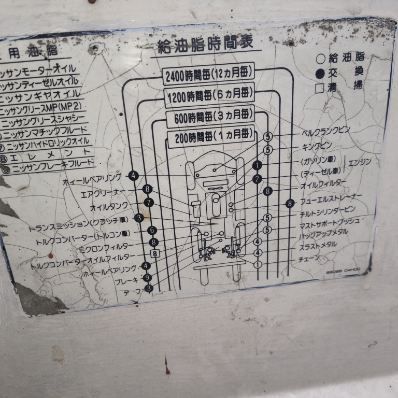 用油脂
給油脂時間表
○ 給油脂
● 交換
□ 清掃
ニッサンモーターオイル
ッサンディーゼルオイル
ニッサンギヤオイル
ニッサングリースMP(MP2)
ニッサングリースシャシー
ニッサンマチックフルード
ニッサンハイドロリックオイル
エレメント
ニッサンブレーキフルード
2400時間毎(12カ月毎)
1200時間毎(6カ月毎)
600時間毎(3カ月毎)
200時間毎(1カ月毎)
ホイールベアリング
エアクリーナー
オイルタンク
トランスミッション(クラッチ車)
トルクコンバーター(トルコン車)
ミクロンフィルター
トルクコンバーターオイルフィルター
ホイールベアリング
ブレーキ
ベルクランクピン
キングピン
(ガソリン車)
(ディーゼル車)
エンジン
オイルフィルター
フューエルストレーナー
チルトシリンダーピン
マストサポートブッシュ
バックアップメタル
スラストメタル
チェーン